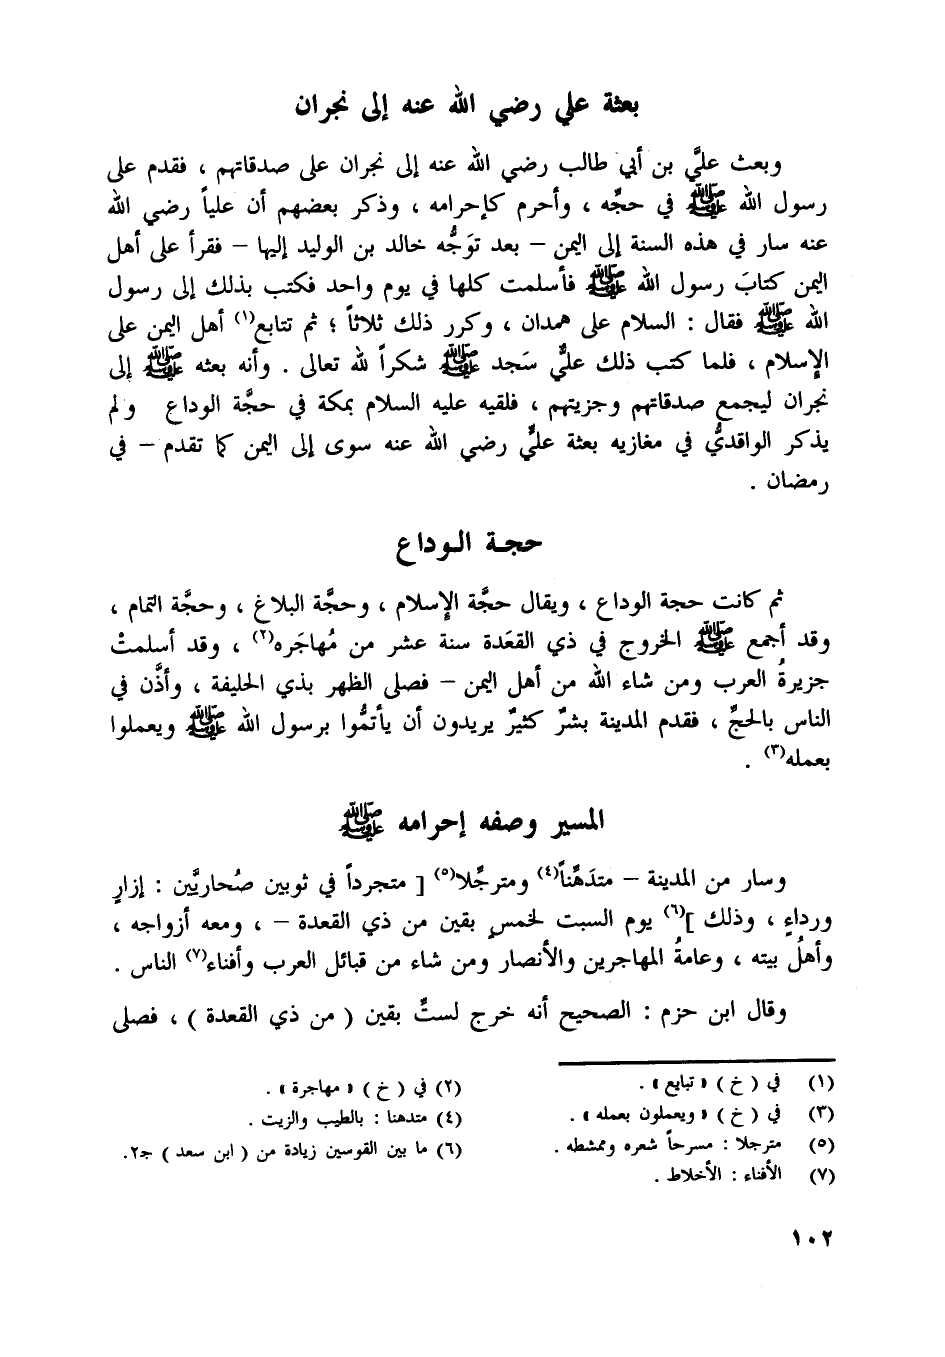 بعثة علي رضي الله عنه إلى نجران
وبعث عليَّ بن أبي طالب رضي الله عنه إلى نجران على صدقاتهم ، فقدم على
رسول الله ﷺ في حجِّه ، وأحرم كإحرامه ، وذكر بعضهم أن علياً رضي الله
عنه سار في هذه السنة إلى اليمن – بعد توَجُّه خالد بن الوليد إليها – فقرأ على أهل
اليمن كتابَ رسول الله ﷺ فأسلمت كلها في يوم واحد فكتب بذلك إلى رسول
الله ﷺ فقال : السلام على همدان ، وكرر ذلك ثلاثاً ؛ ثم تتابع(١) أهل اليمن على
الإسلام ، فلما كتب ذلك عليٌّ سَجد ﷺ شكراً لله تعالى . وأنه بعثه ﷺ إلى
نجران ليجمع صدقاتهم وجزيتهم ، فلقيه عليه السلام بمكة في حجَّة الوداع ولم
يذكر الواقديُّ في مغازيه بعثة عليٍّ رضي الله عنه سوى إلى اليمن كما تقدم – في
رمضان .
حجـة الـوداع
ثم كانت حجة الوداع ، ويقال حجَّة الإسلام ، وحجَّة البلاغ ، وحجَّة التمام ،
وقد أجمع ﷺ الخروج في ذي القعَدة سنة عشر من مُهاجَره(٢) ، وقد أسلمتْ
جزيرةُ العرب ومن شاء الله من أهل اليمن – فصلى الظهر بذي الحليفة ، وأذَّن في
الناس بالحجِّ ، فقدم المدينة بشرٌ كثيرٌ يريدون أن يأتمُّوا برسول الله ﷺ ويعملوا
بعمله(٣) .
المسير وصفه إحرامه ﷺ
وسار من المدينة – متدَهِّناً(٤) ومترجِّلا(٥) [ متجرداً في ثوبين صُحاريَّين : إزارٍ
ورداءٍ ، وذلك ](٦) يوم السبت لخمسٍ بقين من ذي القعدة – ، ومعه أزواجه ،
وأهلُ بيته ، وعامةُ المهاجرين والأنصار ومن شاء من قبائل العرب وأفناء(٧) الناس .
وقال ابن حزم : الصحيح أنه خرج لستٍّ بقين ( من ذي القعدة ) ، فصلى
(١) في ( خ ) « تبايع » .
(٢) في ( خ ) « مهاجرة » .
(٣) في ( خ ) « ويعملون بعمله » .
(٤) متدهنا : بالطيب والزيت .
(٥) مترجلا : مسرحاً شعره وممشطه .
(٦) ما بين القوسين زيادة من ( ابن سعد ) جـ٢.
(٧) الأفناء : الأخلاط .
١٠٢